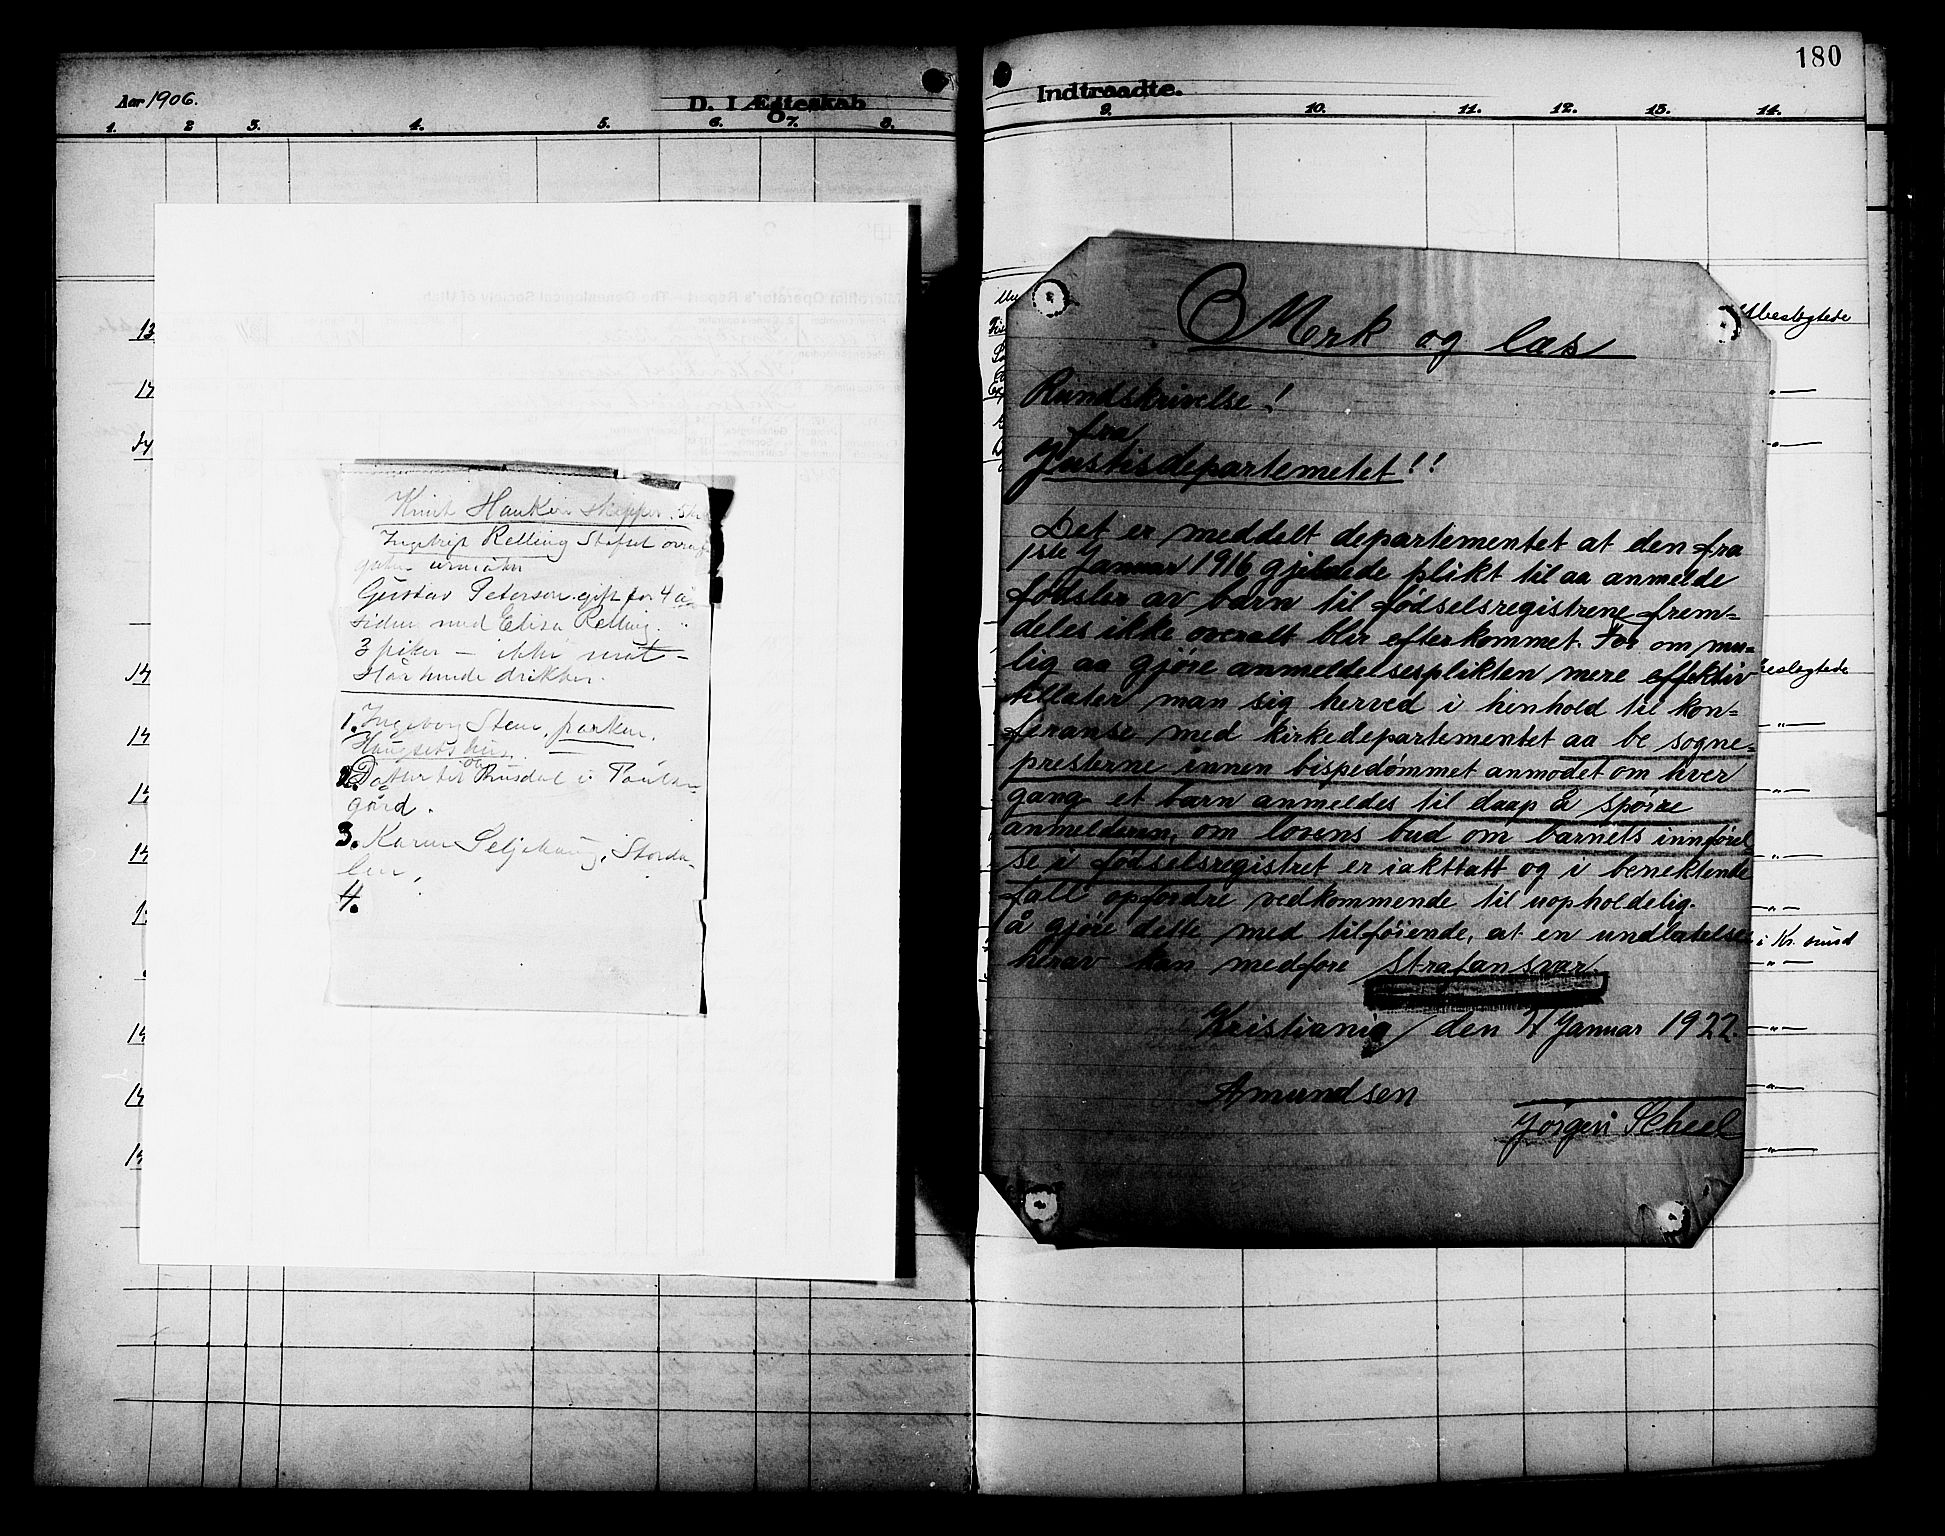 Aar 1906.
D. I Ægteskab
1. 2 3. 4. 5. 6. 7. 8.
Knut Hauken Skipper
Ingebrigt Relling Stafset
Gustav Peterson gift for 4 å
siden med Elisa Relling.
3 piker – ikke mat –
Står hende drikker.
1. Ingeborg Stene, parken.
2. Datter til
gård.
3. Karen Seljehaug, Storda-
len.
4.
180
Indtraadte.
9. 10. 11. 12. 13. 14.
Ubeslegtede
Merk og læs
Rundskrivelse!
fra
Justisdepartemetet!!
Det er meddelt departementet at den fra
1ste Januar 1916 gjeldede plikt til aa anmelde
fødsler av barn til fødselsregistrene frem=
deles ikke overalt blir efterkommet. For om mu=
lig aa gjøre anmeldelsesplikten mere effektiv
tillater man sig herved i henhold til kon=
feranse med kirkedepartementet aa be sogne=
presterne innen bispedømmet anmodet om hver
gang et barn anmeldes til daap å spørre
anmelderen, om lovens bud om barnets innførel=
se i fødselsregistret er iakttatt og i benektende
fall opfordre vedkommende til uopholdelig.
å gjøre dette med tilføiende, at en undlatelse
herav kan medføre strafansvar.
Kristiania den 17 Januar 1922.
Amundsen
Jørgen Scheel
beslegtede
i Kr. sund